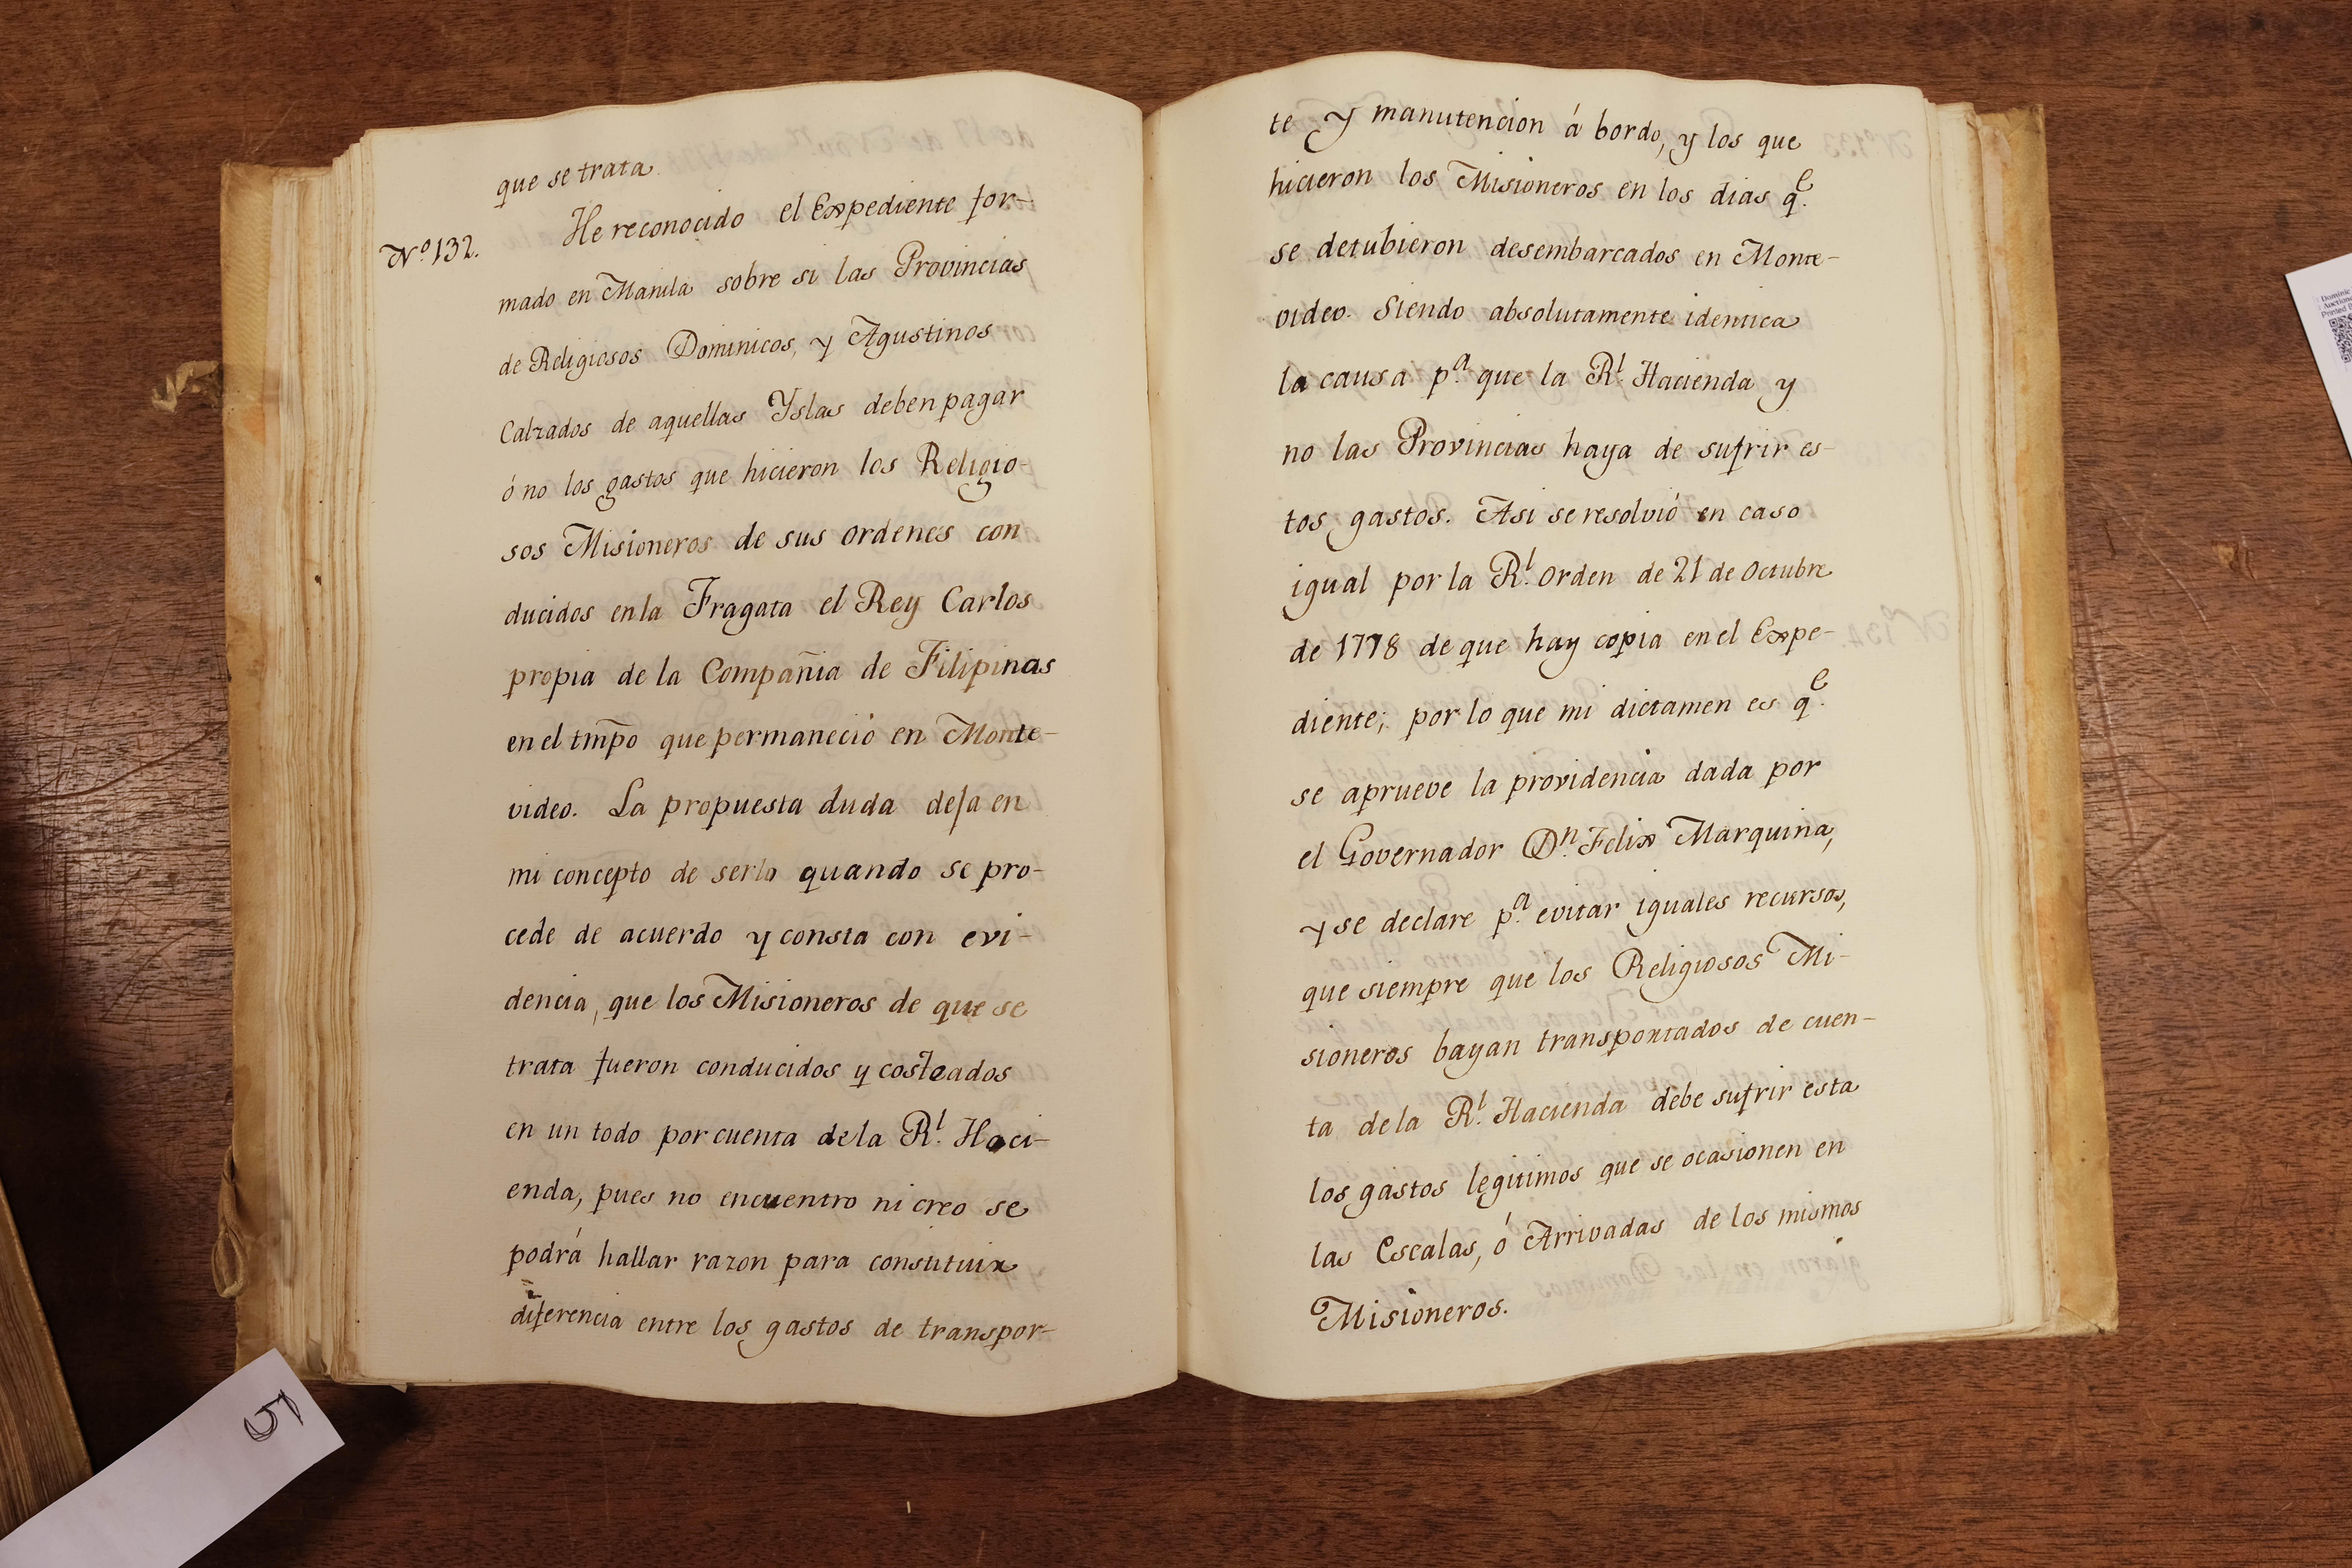 que se trata
Nº.132.
He reconocido el Expediente for-
mado en Manila sobre si las Provincias
de Religiosos Dominicos, y Agustinos
Calzados de aquellas Yslas deben pagar
ó no los gastos que hicieron los Religio-
sos Misioneros de sus ordenes con
ducidos en la Fragata el Rey Carlos
propia de la Compañia de Filipinas
en el tm̃po que permaneció en Monte-
video. La propuesta duda deja en
mi concepto de serlo quando se pro-
cede de acuerdo y consta con evi-
dencia, que los Misioneros de que se
trata fueron conducidos y costeados
en un todo por cuenta de la Rl. Haci-
enda, pues no encuentro ni creo se
podrá hallar razon para constituir
diferencia entre los gastos de transpor-
te y manutencion á bordo, y los que
hicieron los Misioneros en los dias qe.
se detubieron desembarcados en Monte-
video. Siendo absolutamente identica
la causa pa. que la Rl. Hacienda y
no las Provincias haya de sufrir es-
tos gastos. Asi se resolvió en caso
igual por la Rl. Orden de 21 de Octubre
de 1778 de que hay copia en el Expe-
diente; por lo que mi dictamen es qe.
se aprueve la providencia dada por
el Governador Dn. Felix Marquina,
y se declare pa. evitar iguales recursos,
que siempre que los Religiosos Mi-
sioneros bayan transportados de cuen-
ta de la Rl. Hacienda debe sufrir esta
los gastos legitimos que se ocasionen en
las Escalas, ó Arrivadas de los mismos
Misioneros.
5